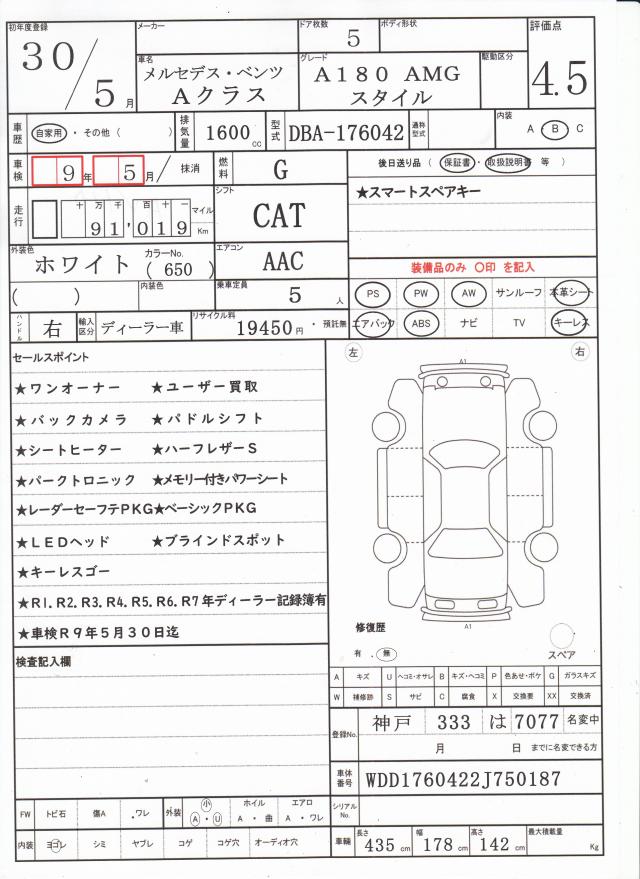 初年度登録 30/5月
メーカー
ドア枚数 5
ボディ形状
評価点 4.5
車名 メルセデス・ベンツ Aクラス
グレード A180 AMG スタイル
駆動区分
車歴 自家用 ・ その他 ( )
排気量 1600 cc
型式 DBA-176042
通称型式
内装 A ・ B ・ C
車検 9年 5月 / 抹消
燃料 G
後日送り品 ( 保証書 ・ 取扱説明書 等 )
走行 十 万 千 百 十 一 91,019 マイル Km
シフト CAT
★スマートスペアキー
外装色 ホワイト カラーNo. ( 650 )
エアコン AAC
装備品のみ 〇印 を記入
( ) 内装色
乗車定員 5 人
PS PW AW サンルーフ 本革シート
エアバック ABS ナビ TV キーレス
ハンドル 右 輸入区分 ディーラー車
リサイクル料 19450円 ・ 預託無
セールスポイント
★ワンオーナー ★ユーザー買取
★バックカメラ ★パドルシフト
★シートヒーター ★ハーフレザーS
★パークトロニック ★メモリー付きパワーシート
★レーダーセーフテPKG★ベーシックPKG
★LEDヘッド ★ブラインドスポット
★キーレスゴー
★R1.R2.R3.R4.R5.R6.R7年ディーラー記録簿有
★車検R9年5月30日迄
左 右
A1
A1
修復歴
有 . 無
スペア
検査記入欄
A キズ U ヘコミ・オサレ B キズ・ヘコミ P 色あせ・ボケ G ガラスキズ
W 補修跡 S サビ C 腐食 X 交換要 XX 交換済
登録No. 神戸 333 は 7077 名変中
月 日 までに名変できる方
車体番号 WDD1760422J750187
シリアルNo.
FW トビ石 傷A .ワレ
外装 小 A ・ U ホイル A ・ 曲 エアロ A ・ ワレ
内装 ヨゴレ シミ ヤブレ コゲ コゲ穴 オーディオ穴
車輛 長さ 435 cm 幅 178 cm 高さ 142 cm 最大積載量 Kg